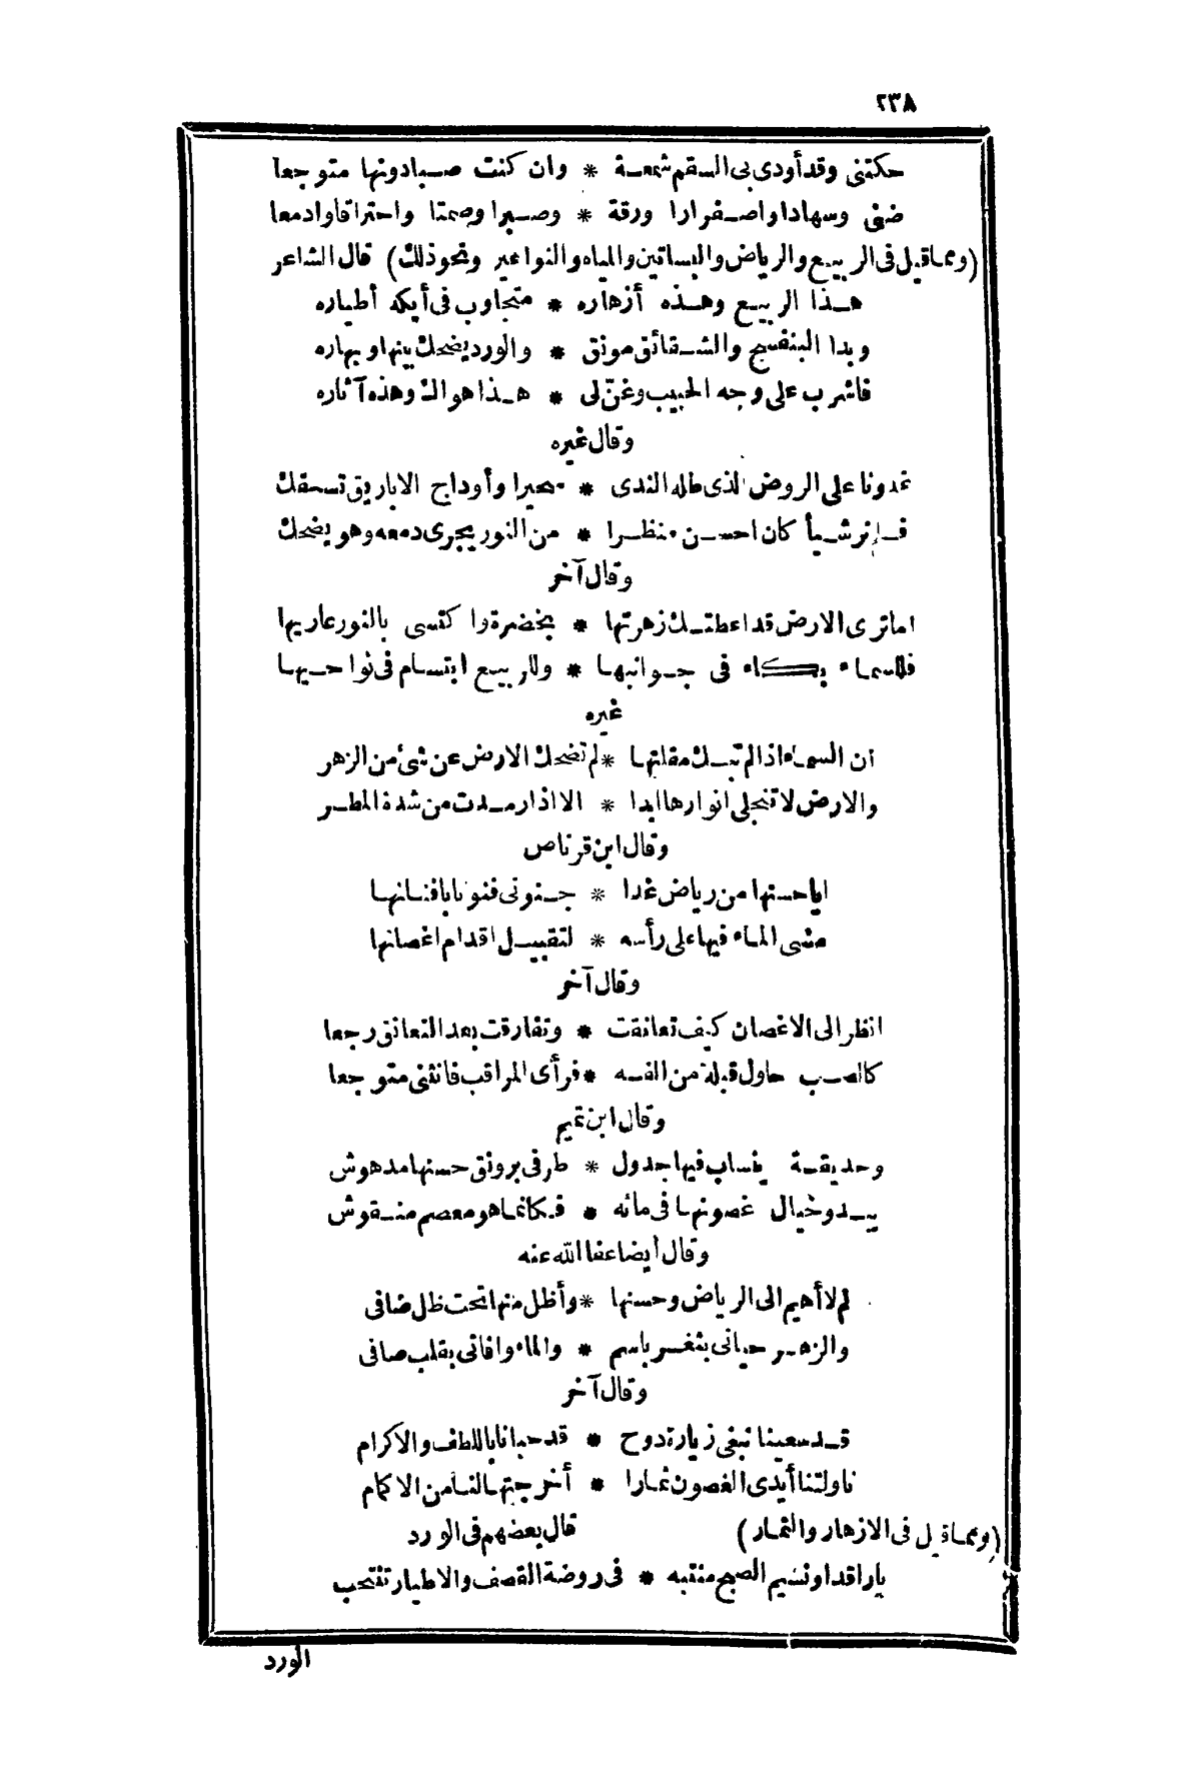 ٢٣٨
حكتنى وقد أودى بى السقم شمعة * وان كنت صبا دونها متوجعا
ضنى وسهادا واصفرارا ورقة * وصبرا وصمتا واحتراقا وادمعا
(ومما قيل فى الربيع والرياض والبساتين والمياه والنواعير ونحو ذلك) قال الشاعر
هذا الربيع وهذه أزهاره * متجاوب فى أيكه أطياره
وبدا البنفسج والشقائق مونق * والورد يضحك بينها وبهاره
فاشرب على وجه الحبيب وغن لى * هذا هواك وهذه آثاره
وقال غيره
غدونا على الروض الذى طله الندى * سحيرا وأوداج الاباريق تسفك
فلم نر شيأ كان احسن منظرا * من النور يجرى دمعه وهو يضحك
وقال آخر
اما ترى الارض قد اعطتك زهرتها * بخضرة واكتسى بالنور عاريها
فللسماء بكاء فى جوانبها * وللربيع ابتسام فى نواحيها
غيره
ان السماء اذا لم تبك مقلتها * لم تضحك الارض عن شئ من الزهر
والارض لا تنجلى انوارها ابدا * الا اذا رمدت من شدة المطر
وقال ابن قرناص
ايا حسنها من رياض غدا * جنونى فنونا بافنانها
مشى الماء فيها على رأسه * لتقبيل اقدام اغصانها
وقال آخر
انظر الى الاغصان كيف تعانقت * وتفارقت بعد التعانق رجعا
كالصب حاول قبلة من الفه * فرأى المراقب فانثنى متوجعا
وقال ابن تميم
وحديقة ينساب فيها جدول * طرفى برونق حسنها مدهوش
يبدو خيال غصونها فى مائه * فكانما هو معصم منقوش
وقال أيضا عفا الله عنه
لم لا أهيم الى الرياض وحسنها * وأظل منها تحت ظل ضافى
والزهر حيانى بثغر باسم * والماء وافانى بقلب صافى
وقال آخر
قد سعينا نبغى زيارة دوح * قد حبانا باللطف والاكرام
ناولتنا أيدى الغصون ثمارا * أخرجتها لنا من الاكمام
(ومما قيل فى الازهار والثمار) قال بعضهم فى الورد
يا راقدا ونسيم الصبح منتبه * فى روضة القصف والاطيار تنتحب
الورد